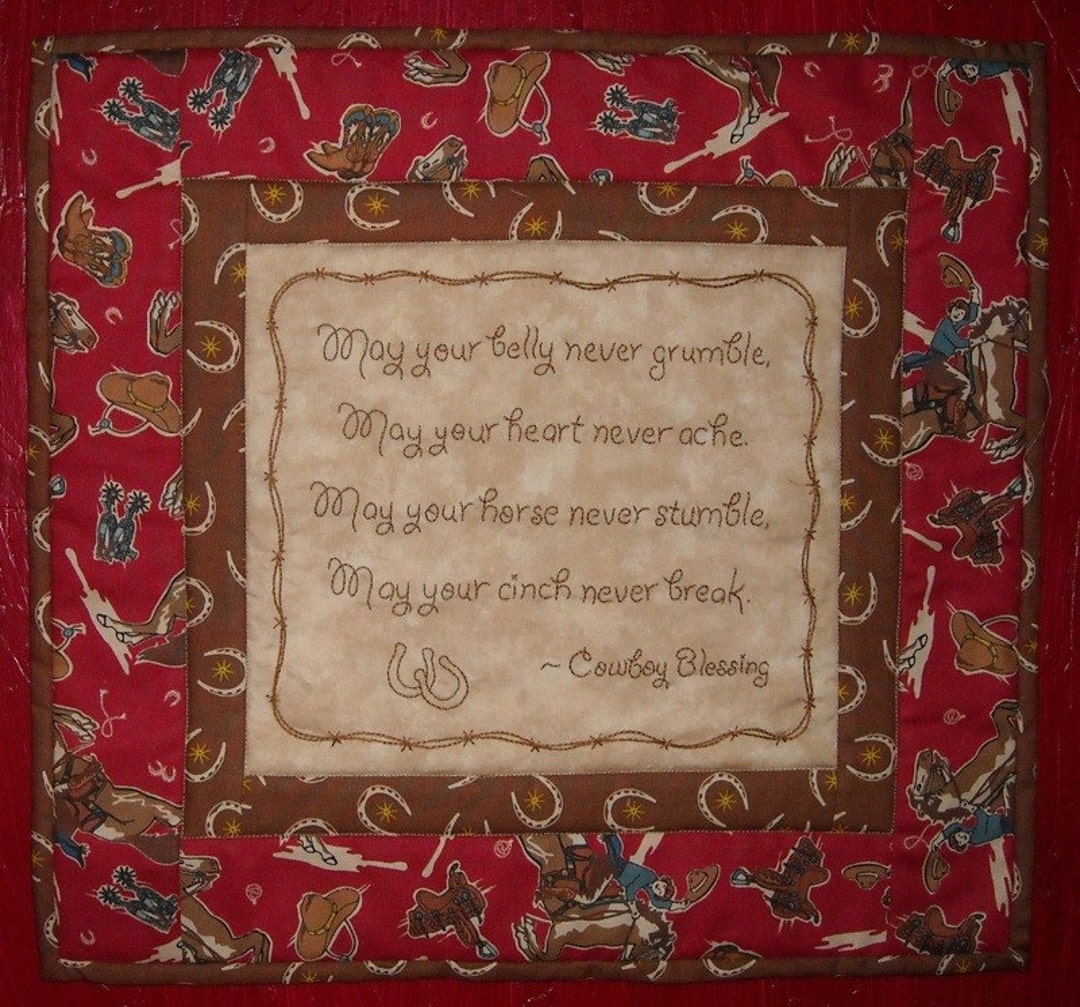 May your belly never grumble,
May your heart never ache.
May your horse never stumble,
May your cinch never break.
~ Cowboy Blessing